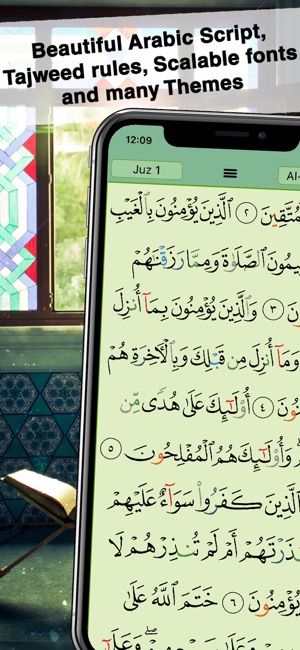 Beautiful Arabic Script,
Tajweed rules, Scalable fonts
and many Themes
12:09
Juz 1
Al-
مُتَّقِينَ ٢ ٱلَّذِينَ يُؤْمِنُونَ بِٱلْغَيْبِ
يمُونَ ٱلصَّلَوٰةَ وَمِمَّا رَزَقْنَٰهُمْ
نَ ٣ وَٱلَّذِينَ يُؤْمِنُونَ بِمَآ أُنزِلَ
وَمَآ أُنزِلَ مِن قَبْلِكَ وَبِٱلْءَاخِرَةِ هُمْ
نُونَ ٤ أُو۟لَٰٓئِكَ عَلَىٰ هُدًى مِّن
وَأُو۟لَٰٓئِكَ هُمُ ٱلْمُفْلِحُونَ ٥
ٱلَّذِينَ كَفَرُوا۟ سَوَآءٌ عَلَيْهِمْ
نذَرْتَهُمْ أَمْ لَمْ تُنذِرْهُمْ لَا
يُؤْمِنُونَ ٦ خَتَمَ ٱللَّهُ عَلَىٰ